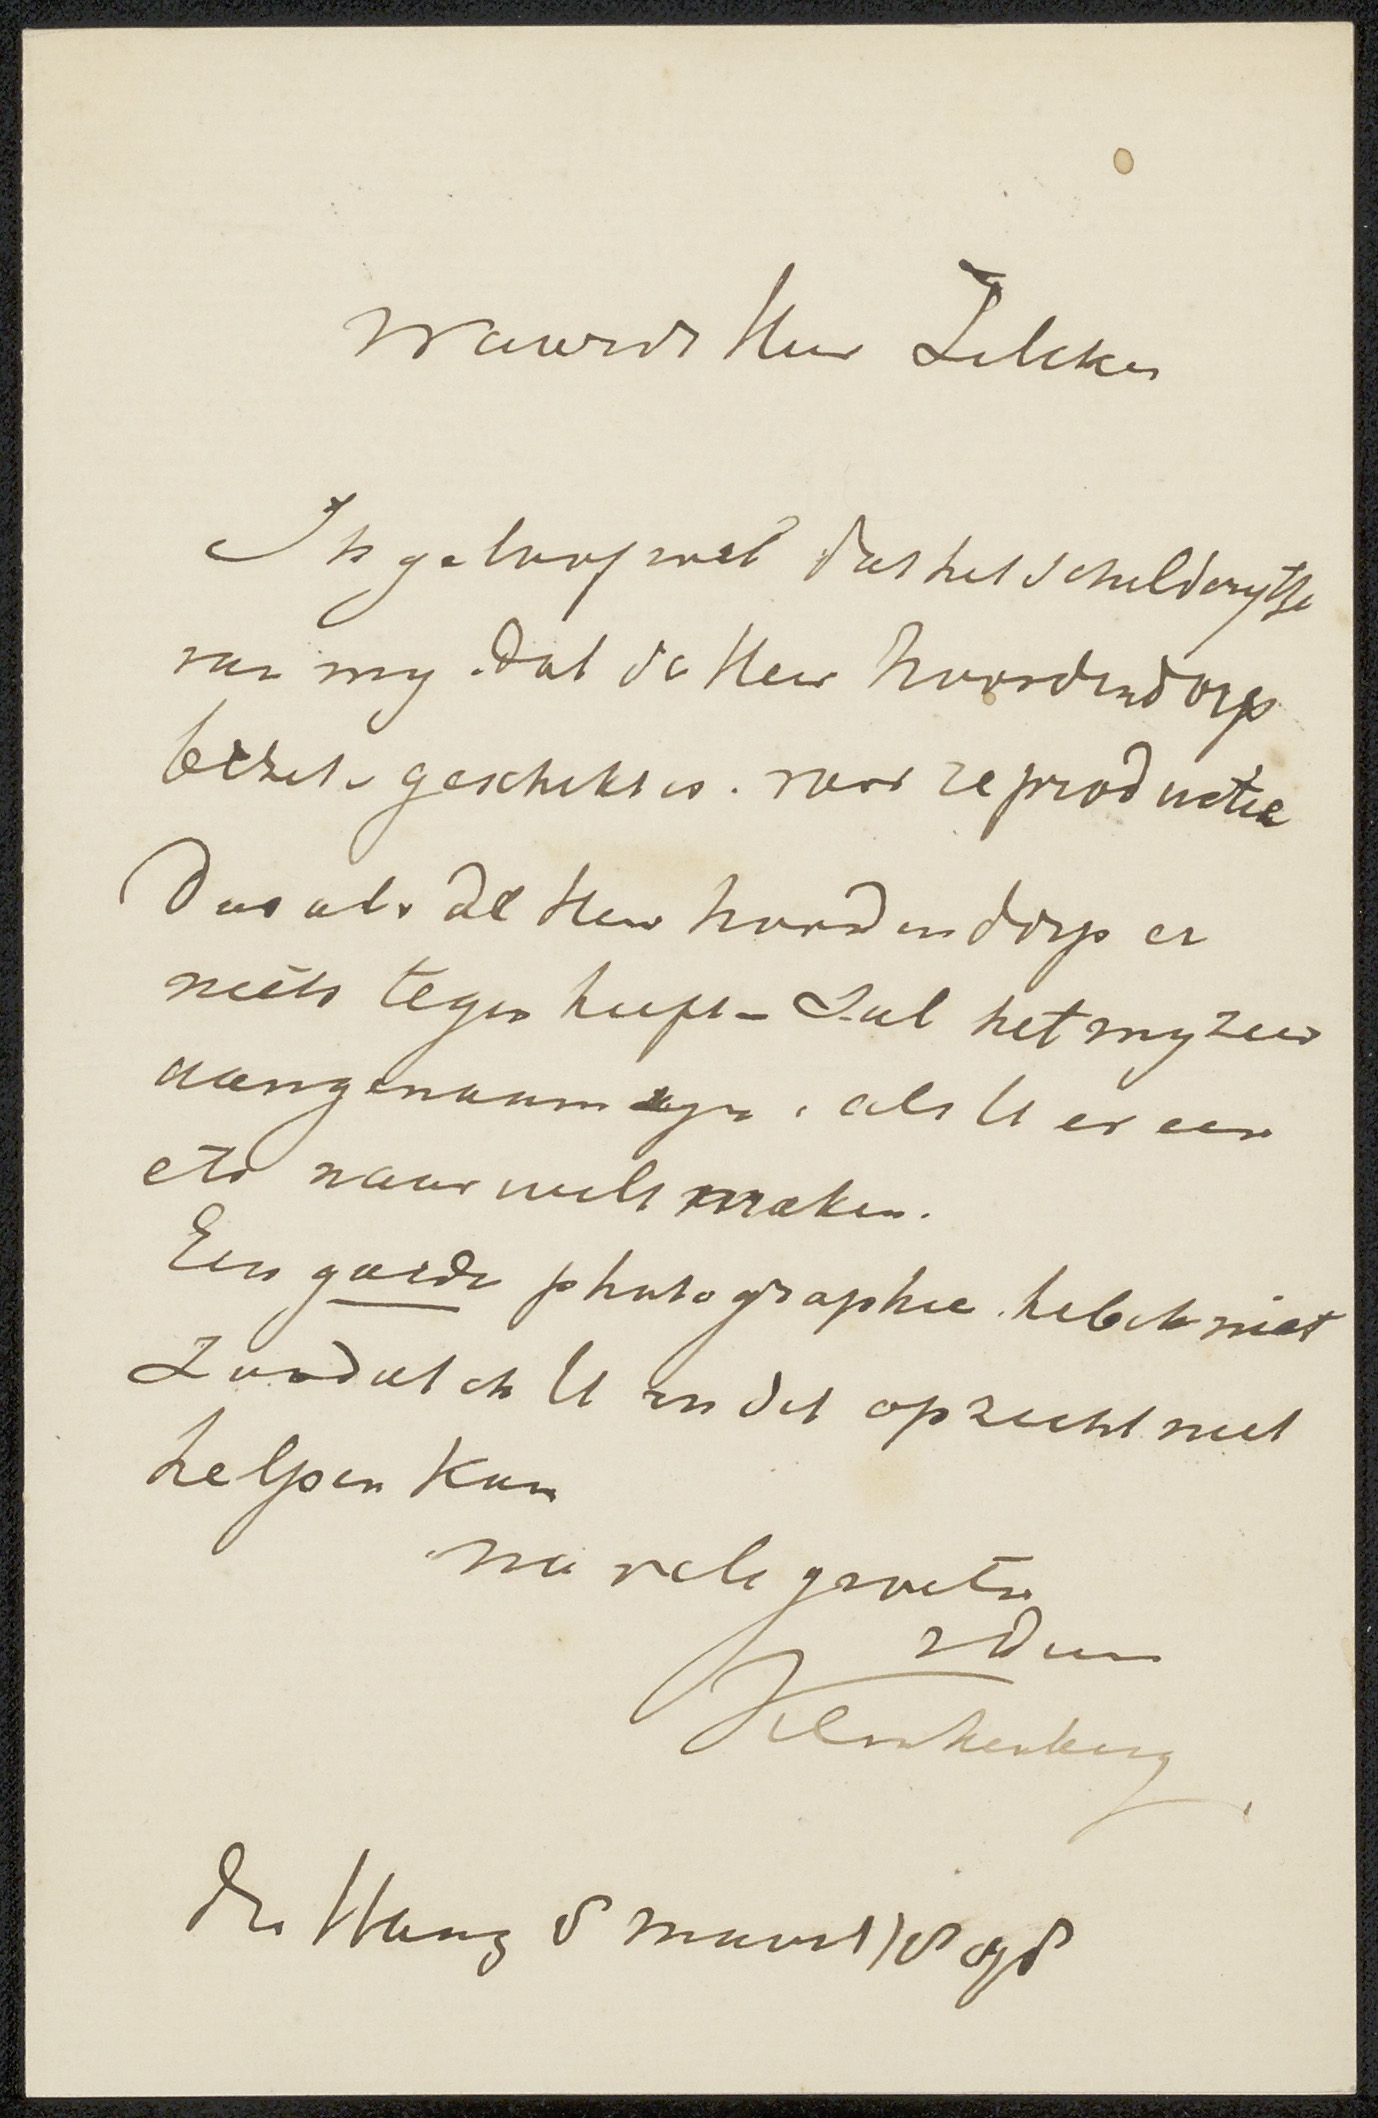 Waarde Heer Zilcken
Ik geloof wel dat het schilderytje
van my dat de Heer Noordendorp
bezit geschikt is. voor reproductie
Dus als de Heer Noordendorp er
niets tegen heeft – Zal het my zeer
aangenaam zyn, als U er een
ets naar wilt maken.
Een goede photographie heb ik niet
Zoodat ik U in dit opzicht niet
helpen kan
na vele groeten
Klinkenberg
den Haag 8 maart 1898